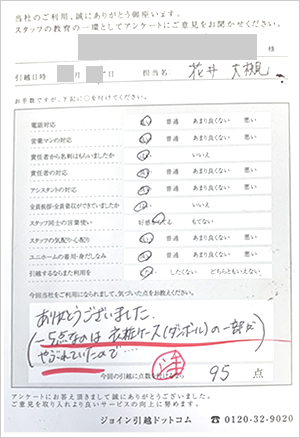 当社のご利用、誠にありがとう御座います。
スタッフの教育の一環としてアンケートにご意見をお聞かせください。
様
引越日時 月 日 担当名 花井 大槻
お手数ですが、下記に○を付けてください。
電話対応 良い 普通 あまり良くない 悪い
営業マンの対応 良い 普通 あまり良くない 悪い
責任者から名刺はもらいましたか はい いいえ
責任者の対応 良い 普通 あまり良くない 悪い
アシスタントの対応 良い 普通 あまり良くない 悪い
全員挨拶・全員返事ができていましたか はい いいえ
スタッフ同士の言葉使い 好感がもてる もてない
スタッフの気配り心配り 良い 普通 あまり良くない 悪い
ユニホームの着用・身だしなみ 良い 普通 あまり良くない 悪い
引越するならまた利用を したい したくない どちらともいえない
今回当社をご利用になられまして、気づいた点をお教えください。
ありがとうございました。
-5点なのは 衣裳ケース(ダンボール)の一部が
やぶれていたので…
今回の引越に点数を付けるなら 95 点
アンケートにお答え頂きまして誠にありがとうございました。
ご意見を取り入れより良いサービスの向上に努めます。
ジョイン引越ドットコム ☎ 0120-32-9020